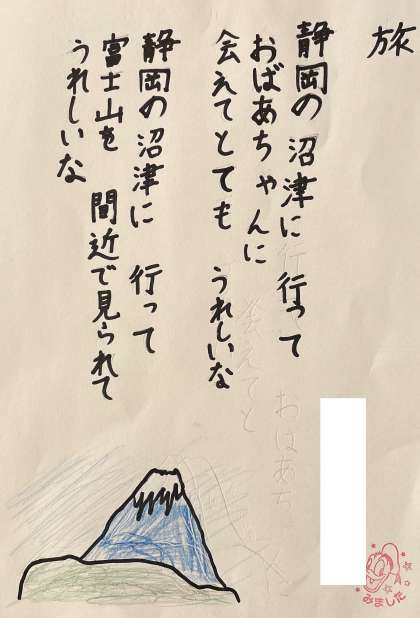 旅
静岡の沼津に行って
おばあちゃんに
会えてとても うれしいな
静岡の沼津に 行って
富士山を 間近で見られて
うれしいな
みました